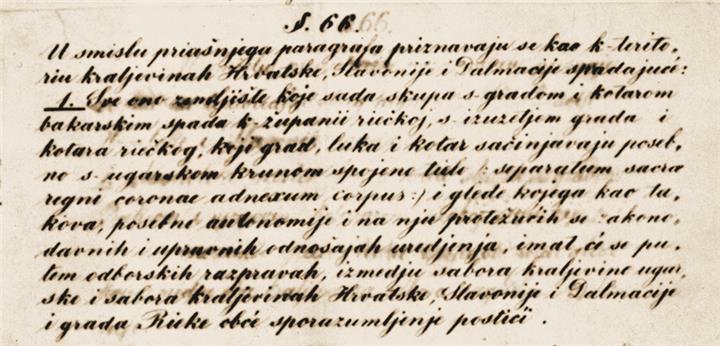 §. 66. 66.
U smislu priašnjega paragrafa priznavaju se kao k-terito,
riu kraljevinah Hrvatske, Slavonije i Dalmacije spadajući:
1. Sve ono zemljište koje sada skupa s-gradom i kotarom
bakarskim spada k-županii riečkoj, s-izuzetjem grada i
kotara riečkog, koji grad, luka i kotar sačinjavaju poseb,
no s-ugarskom krunom spojeno tielo (:separatum sacræ
regni coronae adnexum corpus:) i glede kojega kao ta,
kova, posebne autonomije i na nju protežućih se zakono,
davnih i upravnih odnošajah uredjenja, imat će se pu,
tem odborskih razpravah, izmedju sabora kraljevine ugar,
ske i sabora kraljevinah Hrvatske, Slavonije i Dalmacije
i grada Rieke obće sporazumljenje postići.